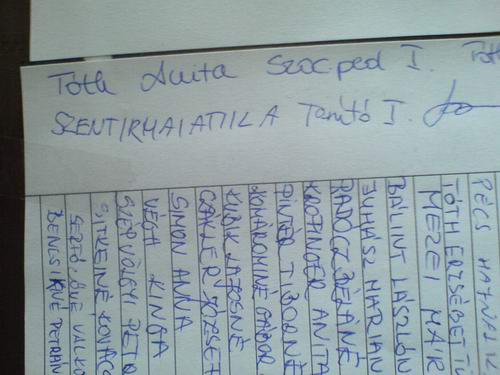 Tóth Anita Szoc.ped I. Tóth
SZENTIRMAI ATTILA Tanító I.
PÉCS HAJNAL
TÓTH ERZSÉBET
MEZEI MÁR
BÁLINT LÁSZLÓN
JUHÁSZ MARIAN
RADÓCZ BÉLÁNÉ
KROHINGER ANITA
PINTÉR TIBORNÉ
KOMÁROMINÉ GÁBOR
KUBIK LAJOSNÉ
CZAKLER JÓZSEF
SIMON ANNA
VÉGH KINGA
SZERVÖLGYI PETR
SITKEINÉ KOVÁC
BENCSIKNÉ PETRÁN